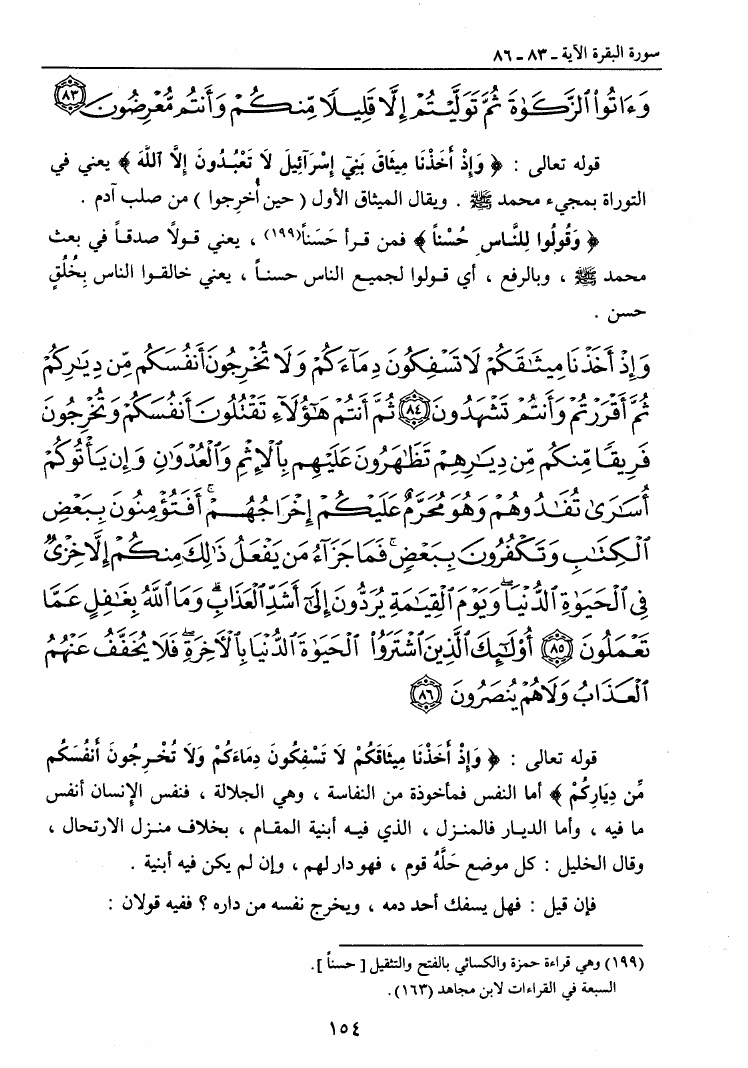 سورة البقرة الآية ـ ٨٣ ـ ٨٦
وَءَاتُوا۟ ٱلزَّكَوٰةَ ثُمَّ تَوَلَّيْتُمْ إِلَّا قَلِيلًا مِّنكُمْ وَأَنتُم مُّعْرِضُونَ ٨٣
قوله تعالى : ﴿ وَإِذْ أَخَذْنَا مِيثَاقَ بَنِيَ إِسْرَآئِيلَ لَا تَعْبُدُونَ إِلَّا ٱللَّهَ ﴾ يعني في
التوراة بمجيء محمد ﷺ . ويقال الميثاق الأول ( حين أُخرِجوا ) من صلب آدم .
﴿ وَقُولُوا لِلنَّاسِ حُسْناً ﴾ فمن قرأ حَسَناً(١٩٩) ، يعني قولاً صدقاً في بعث
محمد ﷺ ، وبالرفع ، أي قولوا لجميع الناس حسناً ، يعني خالقوا الناس بِخُلُقٍ
حسن .
وَإِذْ أَخَذْنَا مِيثَٰقَكُمْ لَا تَسْفِكُونَ دِمَآءَكُمْ وَلَا تُخْرِجُونَ أَنفُسَكُم مِّن دِيَٰرِكُمْ
ثُمَّ أَقْرَرْتُمْ وَأَنتُمْ تَشْهَدُونَ ٨٤ ثُمَّ أَنتُمْ هَٰٓؤُلَآءِ تَقْتُلُونَ أَنفُسَكُمْ وَتُخْرِجُونَ
فَرِيقًا مِّنكُم مِّن دِيَٰرِهِمْ تَظَٰهَرُونَ عَلَيْهِم بِٱلْإِثْمِ وَٱلْعُدْوَٰنِ وَإِن يَأْتُوكُمْ
أُسَٰرَىٰ تُفَٰدُوهُمْ وَهُوَ مُحَرَّمٌ عَلَيْكُمْ إِخْرَاجُهُمْ ۚ أَفَتُؤْمِنُونَ بِبَعْضِ
ٱلْكِتَٰبِ وَتَكْفُرُونَ بِبَعْضٍ ۚ فَمَا جَزَآءُ مَن يَفْعَلُ ذَٰلِكَ مِنكُمْ إِلَّا خِزْىٌ
فِى ٱلْحَيَوٰةِ ٱلدُّنْيَا ۖ وَيَوْمَ ٱلْقِيَٰمَةِ يُرَدُّونَ إِلَىٰٓ أَشَدِّ ٱلْعَذَابِ ۗ وَمَا ٱللَّهُ بِغَٰفِلٍ عَمَّا
تَعْمَلُونَ ٨٥ أُو۟لَٰٓئِكَ ٱلَّذِينَ ٱشْتَرَوُا۟ ٱلْحَيَوٰةَ ٱلدُّنْيَا بِٱلْأَخِرَةِ ۖ فَلَا يُخَفَّفُ عَنْهُمُ
ٱلْعَذَابُ وَلَا هُمْ يُنصَرُونَ ٨٦
قوله تعالى : ﴿ وَإِذْ أَخَذْنَا مِيثَاقَكُمْ لَا تَسْفِكُونَ دِمَاءَكُمْ وَلَا تُخْرِجُونَ أَنفُسَكُم
مِّن دِيَارِكُمْ ﴾ أما النفس فمأخوذة من النفاسة ، وهي الجلالة ، فنفس الإنسان أنفس
ما فيه ، وأما الديار فالمنزل ، الذي فيه أبنية المقام ، بخلاف منزل الارتحال ،
وقال الخليل : كل موضع حَلَّهُ قوم ، فهو دار لهم ، وإن لم يكن فيه أبنية .
فإن قيل : فهل يسفك أحد دمه ، ويخرج نفسه من داره ؟ ففيه قولان :
(١٩٩) وهي قراءة حمزة والكسائي بالفتح والتثقيل [ حسناً ].
السبعة في القراءات لابن مجاهد (١٦٣).
١٥٤